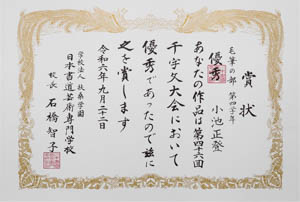 賞状
毛筆の部 第四学年
優秀
小池正登
あなたの作品は第四十六回
千字文大会において
優秀であったので茲に
之を賞します
令和六年九月二十二日
学校法人 扶桑学園
日本書道芸術専門学校
校長 石橋智子